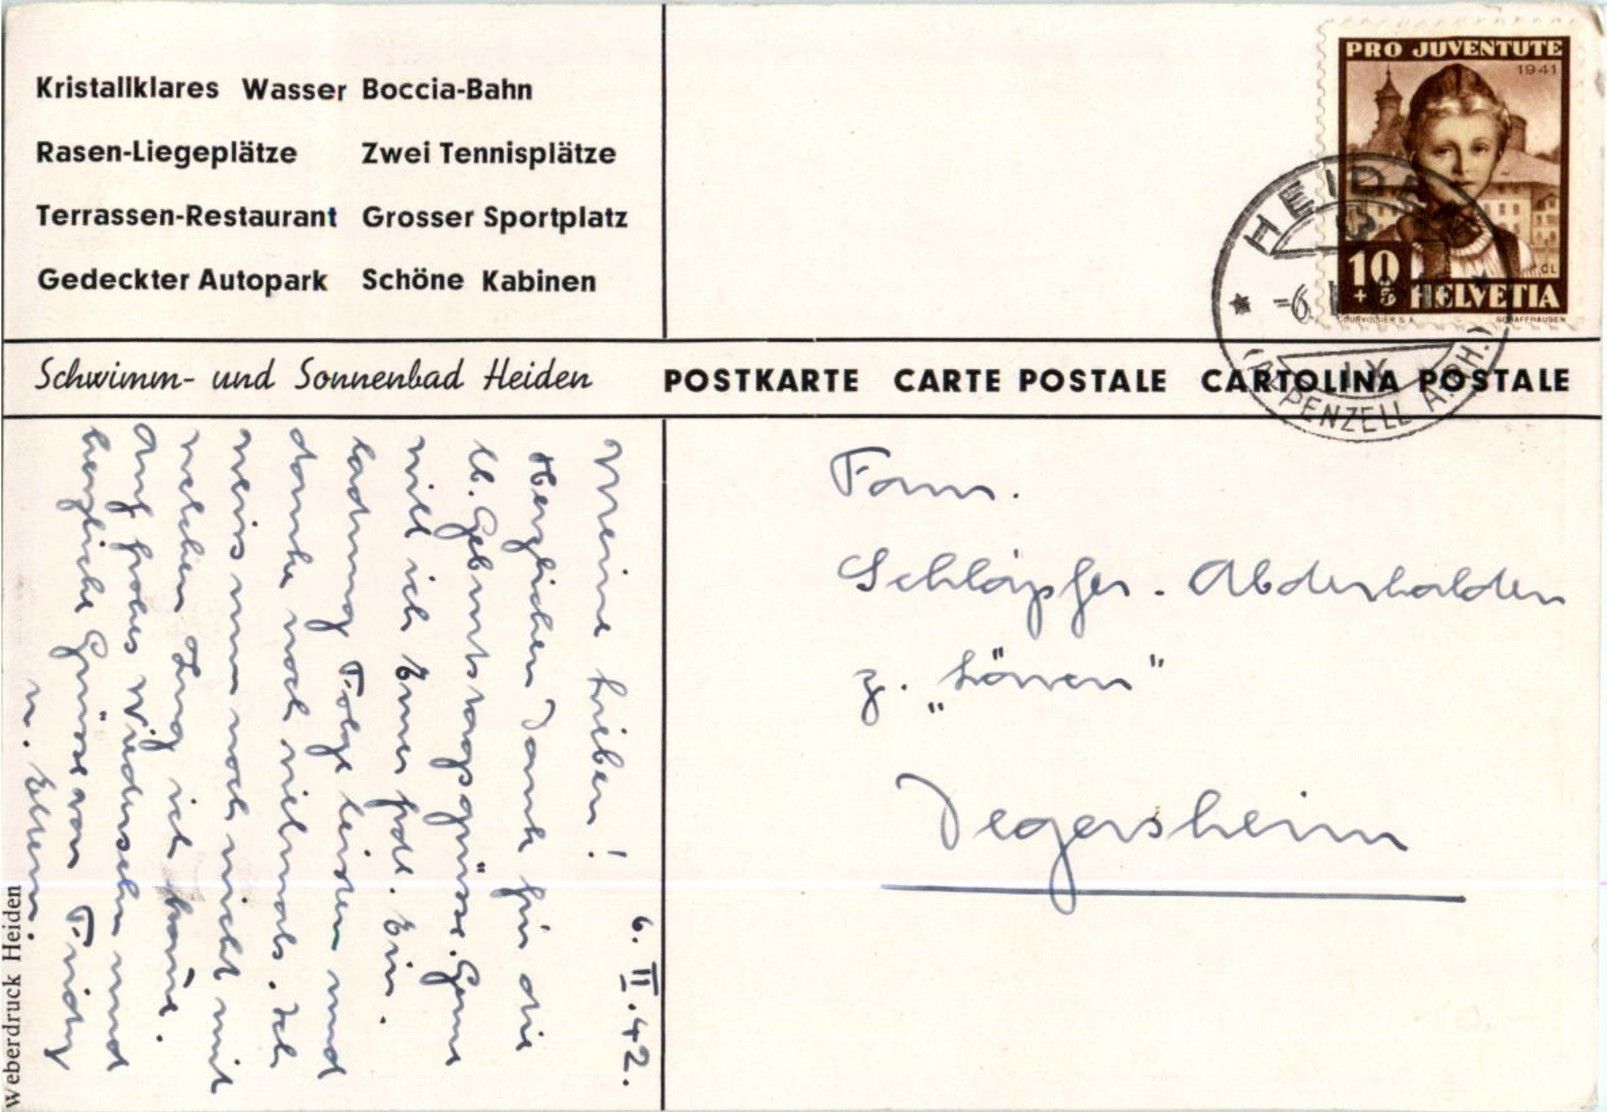 Kristallklares Wasser Boccia-Bahn
Rasen-Liegeplätze Zwei Tennisplätze
Terrassen-Restaurant Grosser Sportplatz
Gedeckter Autopark Schöne Kabinen
PRO JUVENTUTE
1941
10
+5 HELVETIA
COURVOISIER S.A. SCHAFFHAUSEN
HEIDEN
-6.
IX
(APPENZELL A.RH.)
Schwimm- und Sonnenbad Heiden
POSTKARTE CARTE POSTALE CARTOLINA POSTALE
6. II. 42.
Meine Lieben!
Herzlichen Dank für die
lb. Geburtstagsgrüsse. Gerne
will ich Eurer frdl. Ein-
ladung Folge leisten und
danke noch vielmals. Ich
weiss nun noch nicht mit
welchem Zug ich komme.
Auf frohes Wiedersehn und
herzliche Grüsse von Trudy
u. Eltern.
Fam.
Schläpfer-Abderhalden
z. „Löwen"
Degersheim
Weberdruck Heiden